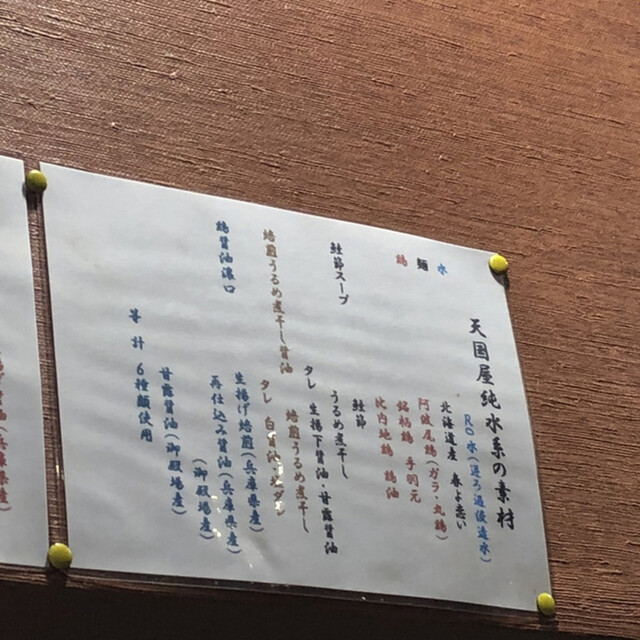 天国屋純水系の素材
水 RO水(逆ろ過後造水)
麺 北海道産 春よ恋い
鶏 阿波尾鶏(ガラ・丸鶏)
銘柄鶏 手羽元
比内地鶏 鶏油
鮭節スープ 鮭節
うるめ煮干し
タレ 生揚げ醤油・甘露醤油
焙煎うるめ煮干し醤油 焙煎うるめ煮干し
タレ 白醤油・塩ダレ
鶏醤油濃口 生揚げ焙煎(兵庫県産)
再仕込み醤油(兵庫県産)
(御殿場産)
甘露醤油(御殿場産)
等 計 6種類使用
醤油(兵庫県産)